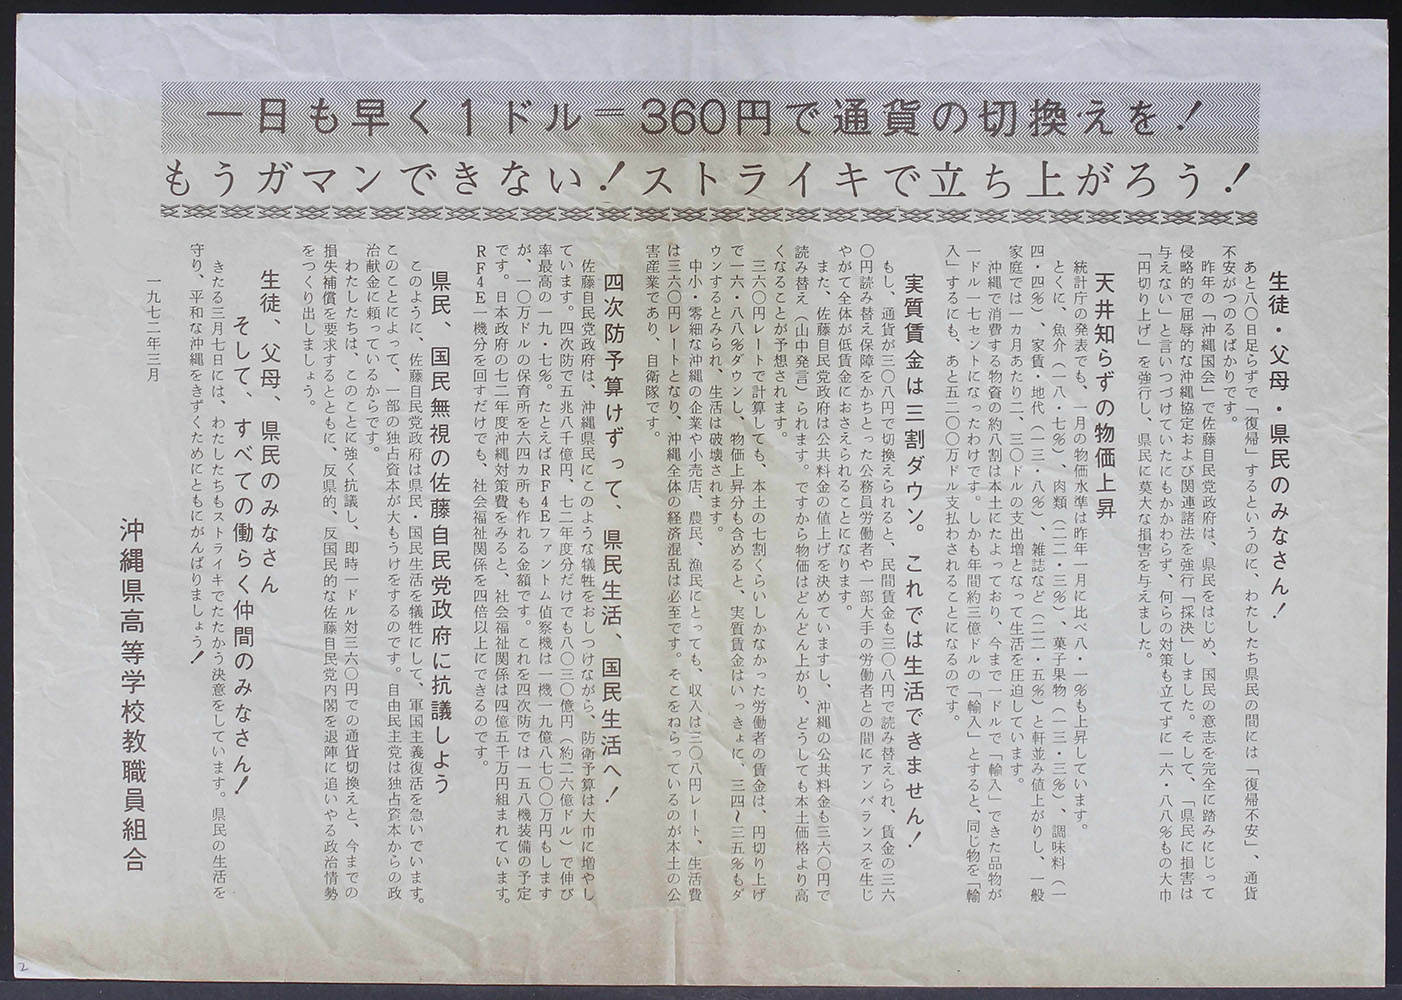 一日も早く1ドル=360円で通貨の切換えを!
もうガマンできない!ストライキで立ち上がろう!
生徒・父母・県民のみなさん!
あと八〇日足らずで「復帰」するというのに、わたしたち県民の間には「復帰不安」、通貨
不安がつのるばかりです。
昨年の「沖縄国会」で佐藤自民党政府は、県民をはじめ、国民の意志を完全に踏みにじって
侵略的で屈辱的な沖縄協定および関連諸法を強行「採決」しました。そして、「県民に損害は
与えない」と言いつづけていたにもかかわらず、何らの対策も立てずに一六・八八%もの大巾
「円切り上げ」を強行し、県民に莫大な損害を与えました。
天井知らずの物価上昇
統計庁の発表でも、一月の物価水準は昨年一月に比べ八・一%も上昇しています。
とくに、魚介(一八・七%)、肉類(二二・三%)、菓子果物(一三・三%)、調味料(一
四・四%)、家賃・地代(一三・八%)、雑誌など(二二・五%)と軒並み値上がりし、一般
家庭では一カ月あたり二、三〇ドルの支出増となって生活を圧迫しています。
沖縄で消費する物資の約八割は本土にたよっており、今まで一ドルで「輸入」できた品物が
一ドル一七セントになったわけです。しかも年間約三億ドルの「輸入」とすると、同じ物を「輸
入」するにも、あと五二〇〇万ドル支払わされることになるのです。
実質賃金は三割ダウン。これでは生活できません!
もし、通貨が三〇八円で切換えられると、民間賃金も三〇八円で読み替えられ、賃金の三六
〇円読み替え保障をかちとった公務員労働者や一部大手の労働者との間にアンバランスを生じ
やがて全体が低賃金におさえられることになります。
また、佐藤自民党政府は公共料金の値上げを決めていますし、沖縄の公共料金も三六〇円で
読み替え(山中発言)られます。ですから物価はどんどん上がり、どうしても本土価格より高
くなることが予想されます。
三六〇円レートで計算しても、本土の七割くらいしかなかった労働者の賃金は、円切り上げ
で一六・八八%ダウンし、物価上昇分も含めると、実質賃金はいっきょに、三四~三五%もダ
ウンするとみられ、生活は破壊されます。
中小・零細な沖縄の企業や小売店、農民、漁民にとっても、収入は三〇八円レート、生活費
は三六〇円レートとなり、沖縄全体の経済混乱は必至です。そこをねらっているのが本土の公
害産業であり、自衛隊です。
四次防予算けずって、県民生活、国民生活へ!
佐藤自民党政府は、沖縄県民にこのような犠牲をおしつけながら、防衛予算は大巾に増やし
ています。四次防で五兆八千億円、七二年度分だけでも八〇三〇億円(約二六億ドル)で伸び
率最高の一九・七%。たとえばRF4Eファントム偵察機は一機一九億八七〇〇万円もします
が、一〇万ドルの保育所を六四カ所も作れる金額です。これを四次防では一五八機装備の予定
です。日本政府の七二年度沖縄対策費をみると、社会福祉関係は四億五千万円組まれています。
RF4E一機分を回すだけでも、社会福祉関係を四倍以上にできるのです。
県民、国民無視の佐藤自民党政府に抗議しよう
このように、佐藤自民党政府は県民・国民生活を犠牲にして、軍国主義復活を急いでいます。
このことによって、一部の独占資本が大もうけをするのです。自由民主党は独占資本からの政
治献金に頼っているからです。
わたしたちは、このことに強く抗議し、即時一ドル対三六〇円での通貨切換えと、今までの
損失補償を要求するとともに、反県的、反国民的な佐藤自民党内閣を退陣に追いやる政治情勢
をつくり出しましょう。
生徒、父母、県民のみなさん
そして、すべての働らく仲間のみなさん!
きたる三月七日には、わたしたちもストライキでたたかう決意をしています。県民の生活を
守り、平和な沖縄をきずくためにともにがんばりましょう!
一九七二年三月
沖縄県高等学校教職員組合
2